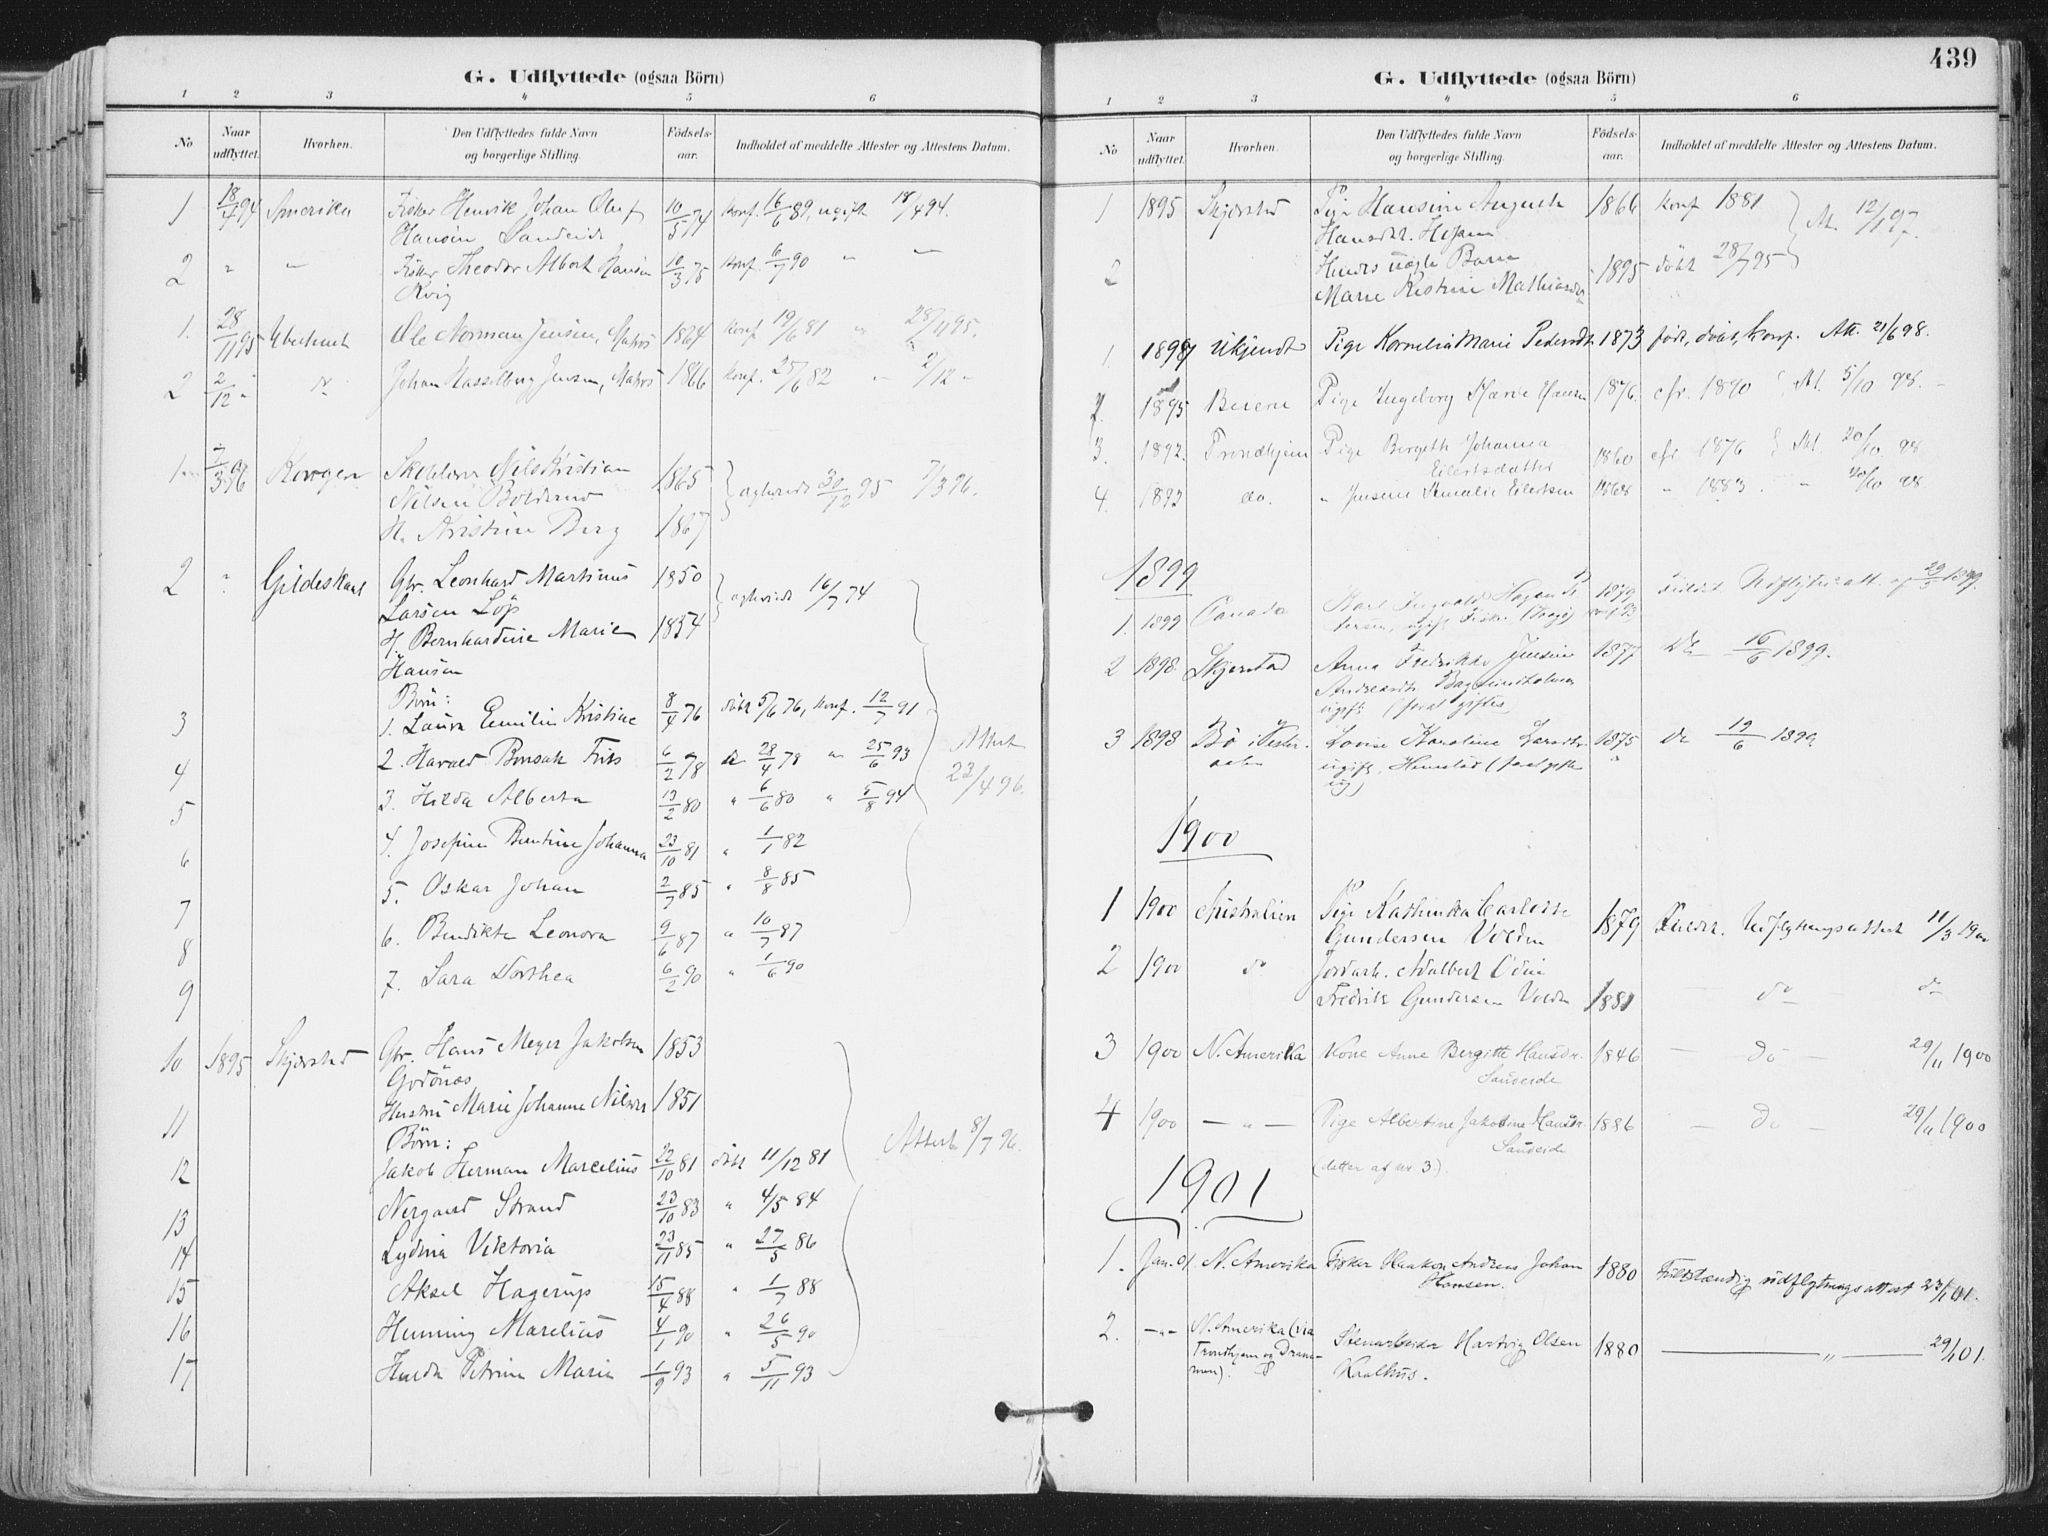 G. Udflyttede (ogsaa Börn)
1 2 3 4 5 6
No. Naar udflyttet. Hvorhen. Den Udflyttedes fulde Navn og borgerlige Stilling. Födsels-aar. Indholdet af meddelte Attester og Attestens Datum.
1 18/4 94 Amerika Fisker Henrik Johan Oluf 10/5 74 konf. 16/6 89, ugift 18/4 94.
Hansen Sandeide
2 " — Fisker Theodor Albert Hansen 10/3 75 konf. 6/7 90 " —
Kvig
1. 28/11 95 Ubestemt Ole Norman Jensen, Matros 1864 konf 19/6 81 " 28/11 95.
2 2/12 " Johan Hasselberg Jensen, Matros 1866 konf. 25/6 82 — 2/12 "
1 7/3 96 Korgen Nils Kristian 1865 30/12 95 7/3 96.
Nilsen
H. Kristine Berg 1867
2 " Gildeskaal Gbr. Leonhard Martinus 1850 16/7 74
Larsen Löp
H. Bernhardine Marie 1854
Hansen
Börn:
3 1. Laura Emilie Kristine 8/4 76 döbt 5/6 76, konf. 12/7 91
4 2. Harald Bonsak Friis 6/2 78 do 28/4 78 " 25/6 93 Attest
5 3. Hilda Alberta 13/2 80 " 6/6 80 " 5/8 94 23/4 96.
6 4. Josefine Bentine Johanna 23/10 81 " 1/1 82
7 5. Oskar Johan 2/7 85 " 8/8 85
8 6. Bendikta Leonora 9/6 87 " 10/7 87
9 7. Sara Dorthea 6/2 90 " 1/6 90
10 1895 Skjerstad Gbr. Hans Meyer Jakobsen 1853
Godönes
11 Hustru Marie Johanne Nilsen 1851
Börn: Attest 8/7 96.
12 Jakob Herman Marcelius 22/10 81 döbt 11/12 81
13 Nergaard Strand 23/10 83 " 4/5 84
14 Lydia Viktoria 23/11 85 " 27/5 86
15 Aksel Hagerup 15/4 88 " 1/7 88
16 Henning Marelius 4/1 90 " 26/5 90
17 Hulda Petrine Marie 1/9 93 " 5/11 93
439
G. Udflyttede (ogsaa Börn)
1 2 3 4 5 6
No Naar udflyttet. Hvorhen. Den Udflyttedes fulde Navn og borgerlige Stilling. Födsels-aar. Indholdet af meddelte Attester og Attestens Datum.
1 1895 Skjerstad Pige Hansine Augusta 1866 konf 1881 Att. 12/1 97.
Hansdtr.
2 Hendes uægte Barn 1895 döbt 28/7 95
Marie Kristine Mathiasdtr
1. 1898 Ukjendt Pige Kornelia Marie Pedersdtr 1873 födt, döbt, konf. Att. 21/6 98.
2. 1895 Beiern Pige Ingeborg Marie Hansen 1876 cfr. 1890 Att. 5/10 98.
3. 1892. Trondhjem Pige Bergeth Johanna 1860 cfr 1876 Att. 20/10 98
Eilertsdatter
4. 1892 do. " Jensine Amalie Eilertsen 1868 " 1883. " 20/10 98.
1899
1. 1899 Canada Karl Ingvald Hagen Pe- 1879 Fuldst. Udflytn.att. af 29/5 1899.
tersen, ugift Fisker
2 1898 Skjerstad Anna Fredrikke Jensine 1877 Do 16/6 1899.
Andreasdtr.
ugift
3 1898 Bö i Vester- Lovise Karoline Larsdtr. 1875 Do 19/6 1899
aalen ugift,
1900
1 1900 Australien Pige Kathinka Carlotte 1879 Fuldst. Udflytningsattest 11/3 1900
Gundersen Volden
2 1900 do Jordarb. Adalbert Odin
Fredrik Gundersen Volden 1881 — do — do
3 1900 N. Amerika Kone Anne Bergitte Hansdtr. 1846 — do — 29/11 1900
Sandeide
4 1900 — " — Pige Albertine Jakobine Hansdtr. 1886 — do — 29/11 1900
Sandeide
(datter af nr 3).
1901
1. Jan. 01. N. Amerika Fisker Haakon Andreas Johan 1880 Fuldstændig udflytningsattest 23/1 01.
Hansen.
2. —"— N. Amerika (via Stenarbeider Hartvig Olsen 1880 — " — 29/1 01.
Trondhjem og Dram-
men). Kvalhus.